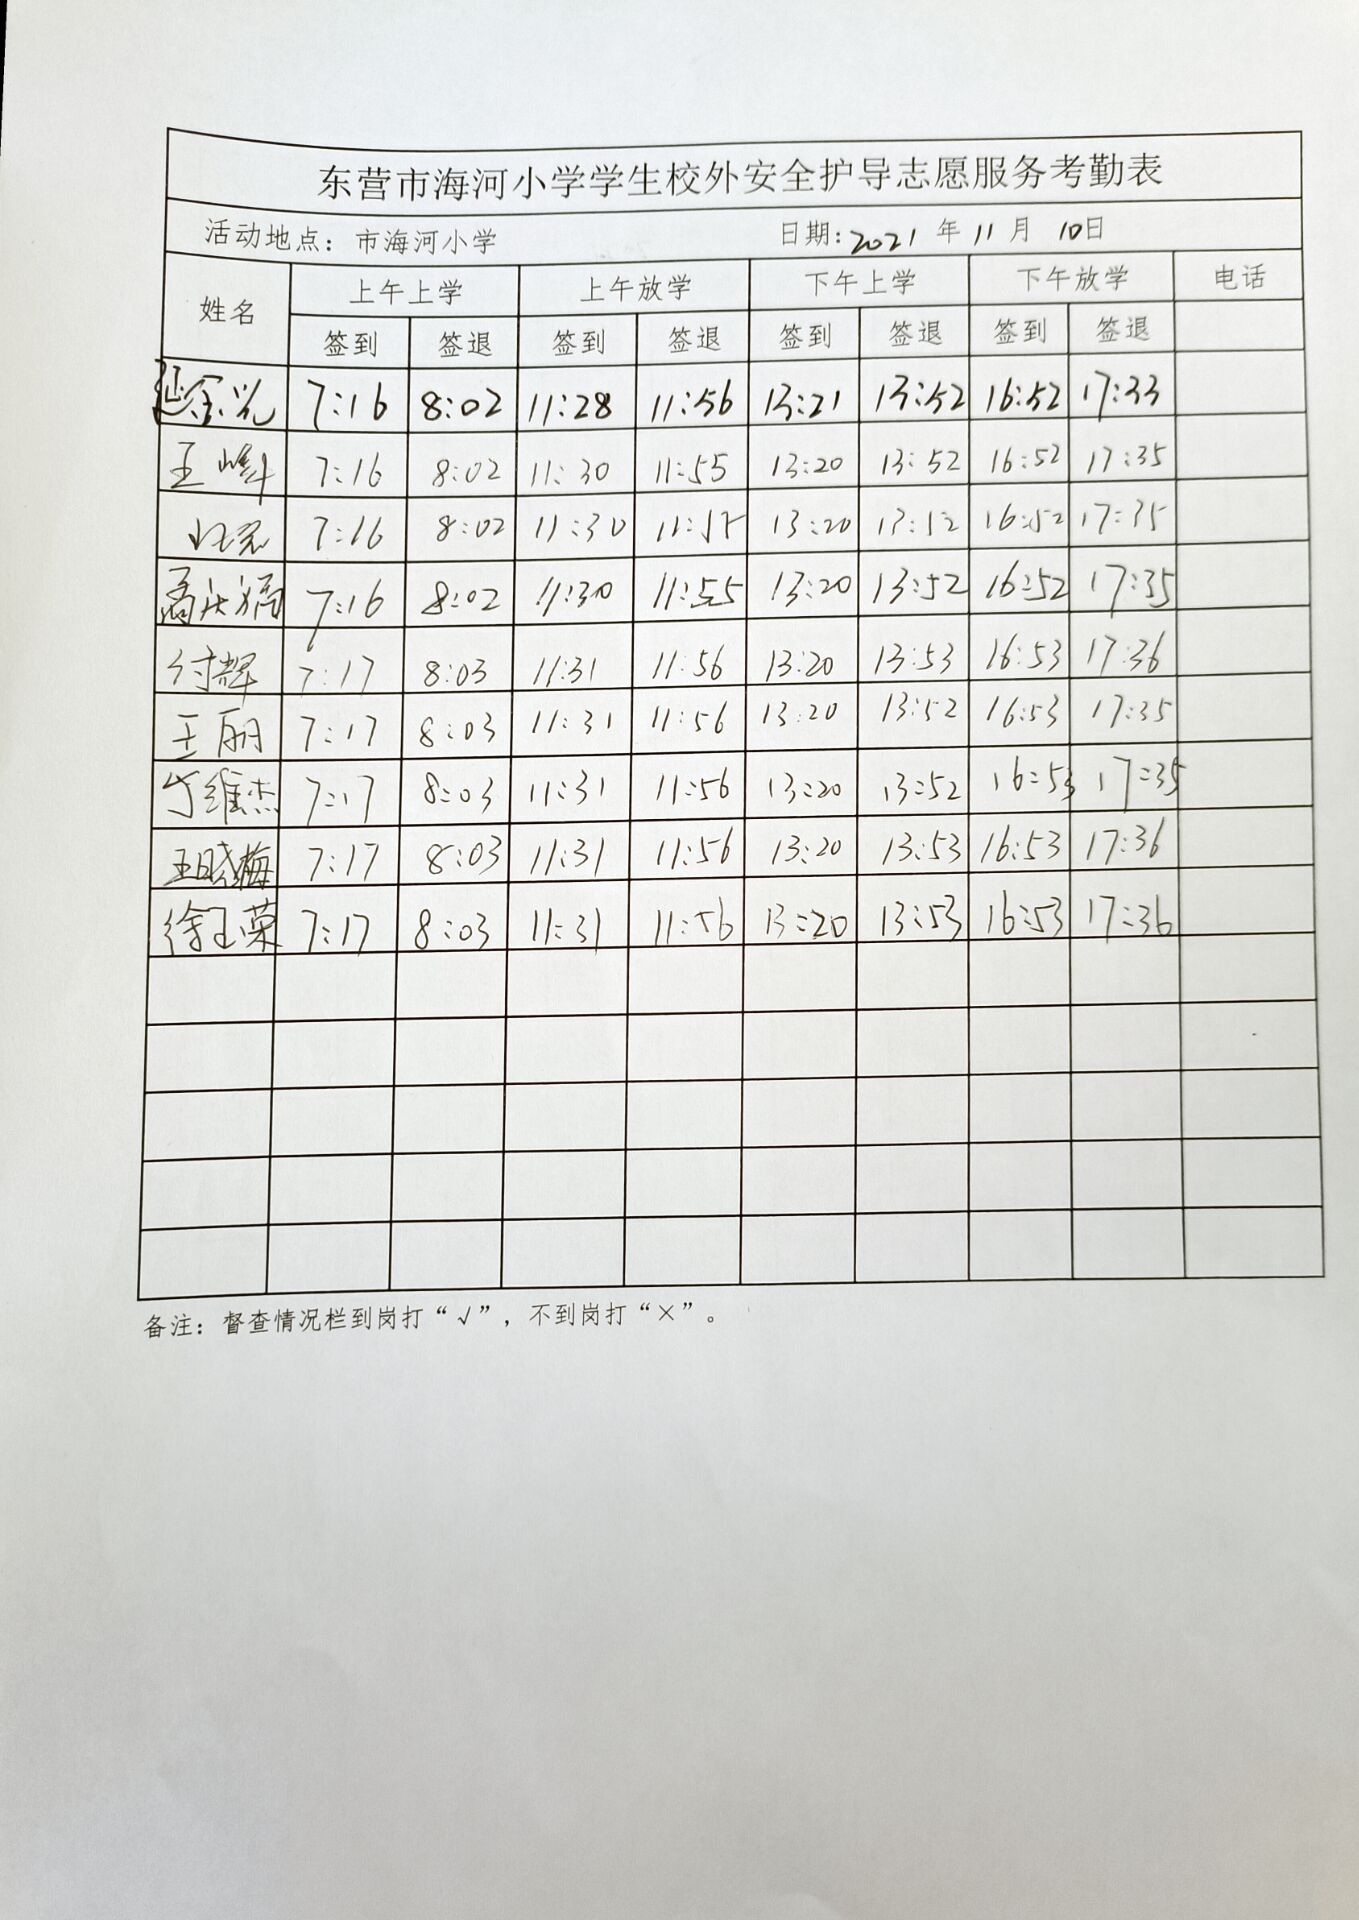 东营市海河小学学生校外安全护导志愿服务考勤表
活动地点：市海河小学 日期:2021年11月10日
姓名 上午上学 上午放学 下午上学 下午放学 电话
签到 签退 签到 签退 签到 签退 签到 签退
延金光 7:16 8:02 11:28 11:56 13:21 13:52 16:52 17:33
王峰 7:16 8:02 11:30 11:55 13:20 13:52 16:52 17:35
7:16 8:02 11:30 11:55 13:20 13:52 16:52 17:35
7:16 8:02 11:30 11:55 13:20 13:52 16:52 17:35
付辉 7:17 8:03 11:31 11:56 13:20 13:53 16:53 17:36
王丽 7:17 8:03 11:31 11:56 13:20 13:52 16:53 17:35
维杰 7:17 8:03 11:31 11:56 13:20 13:52 16:53 17:35
王晓梅 7:17 8:03 11:31 11:56 13:20 13:53 16:53 17:36
徐玉荣 7:17 8:03 11:31 11:56 13:20 13:53 16:53 17:36
备注：督查情况栏到岗打“√”，不到岗打“×”。